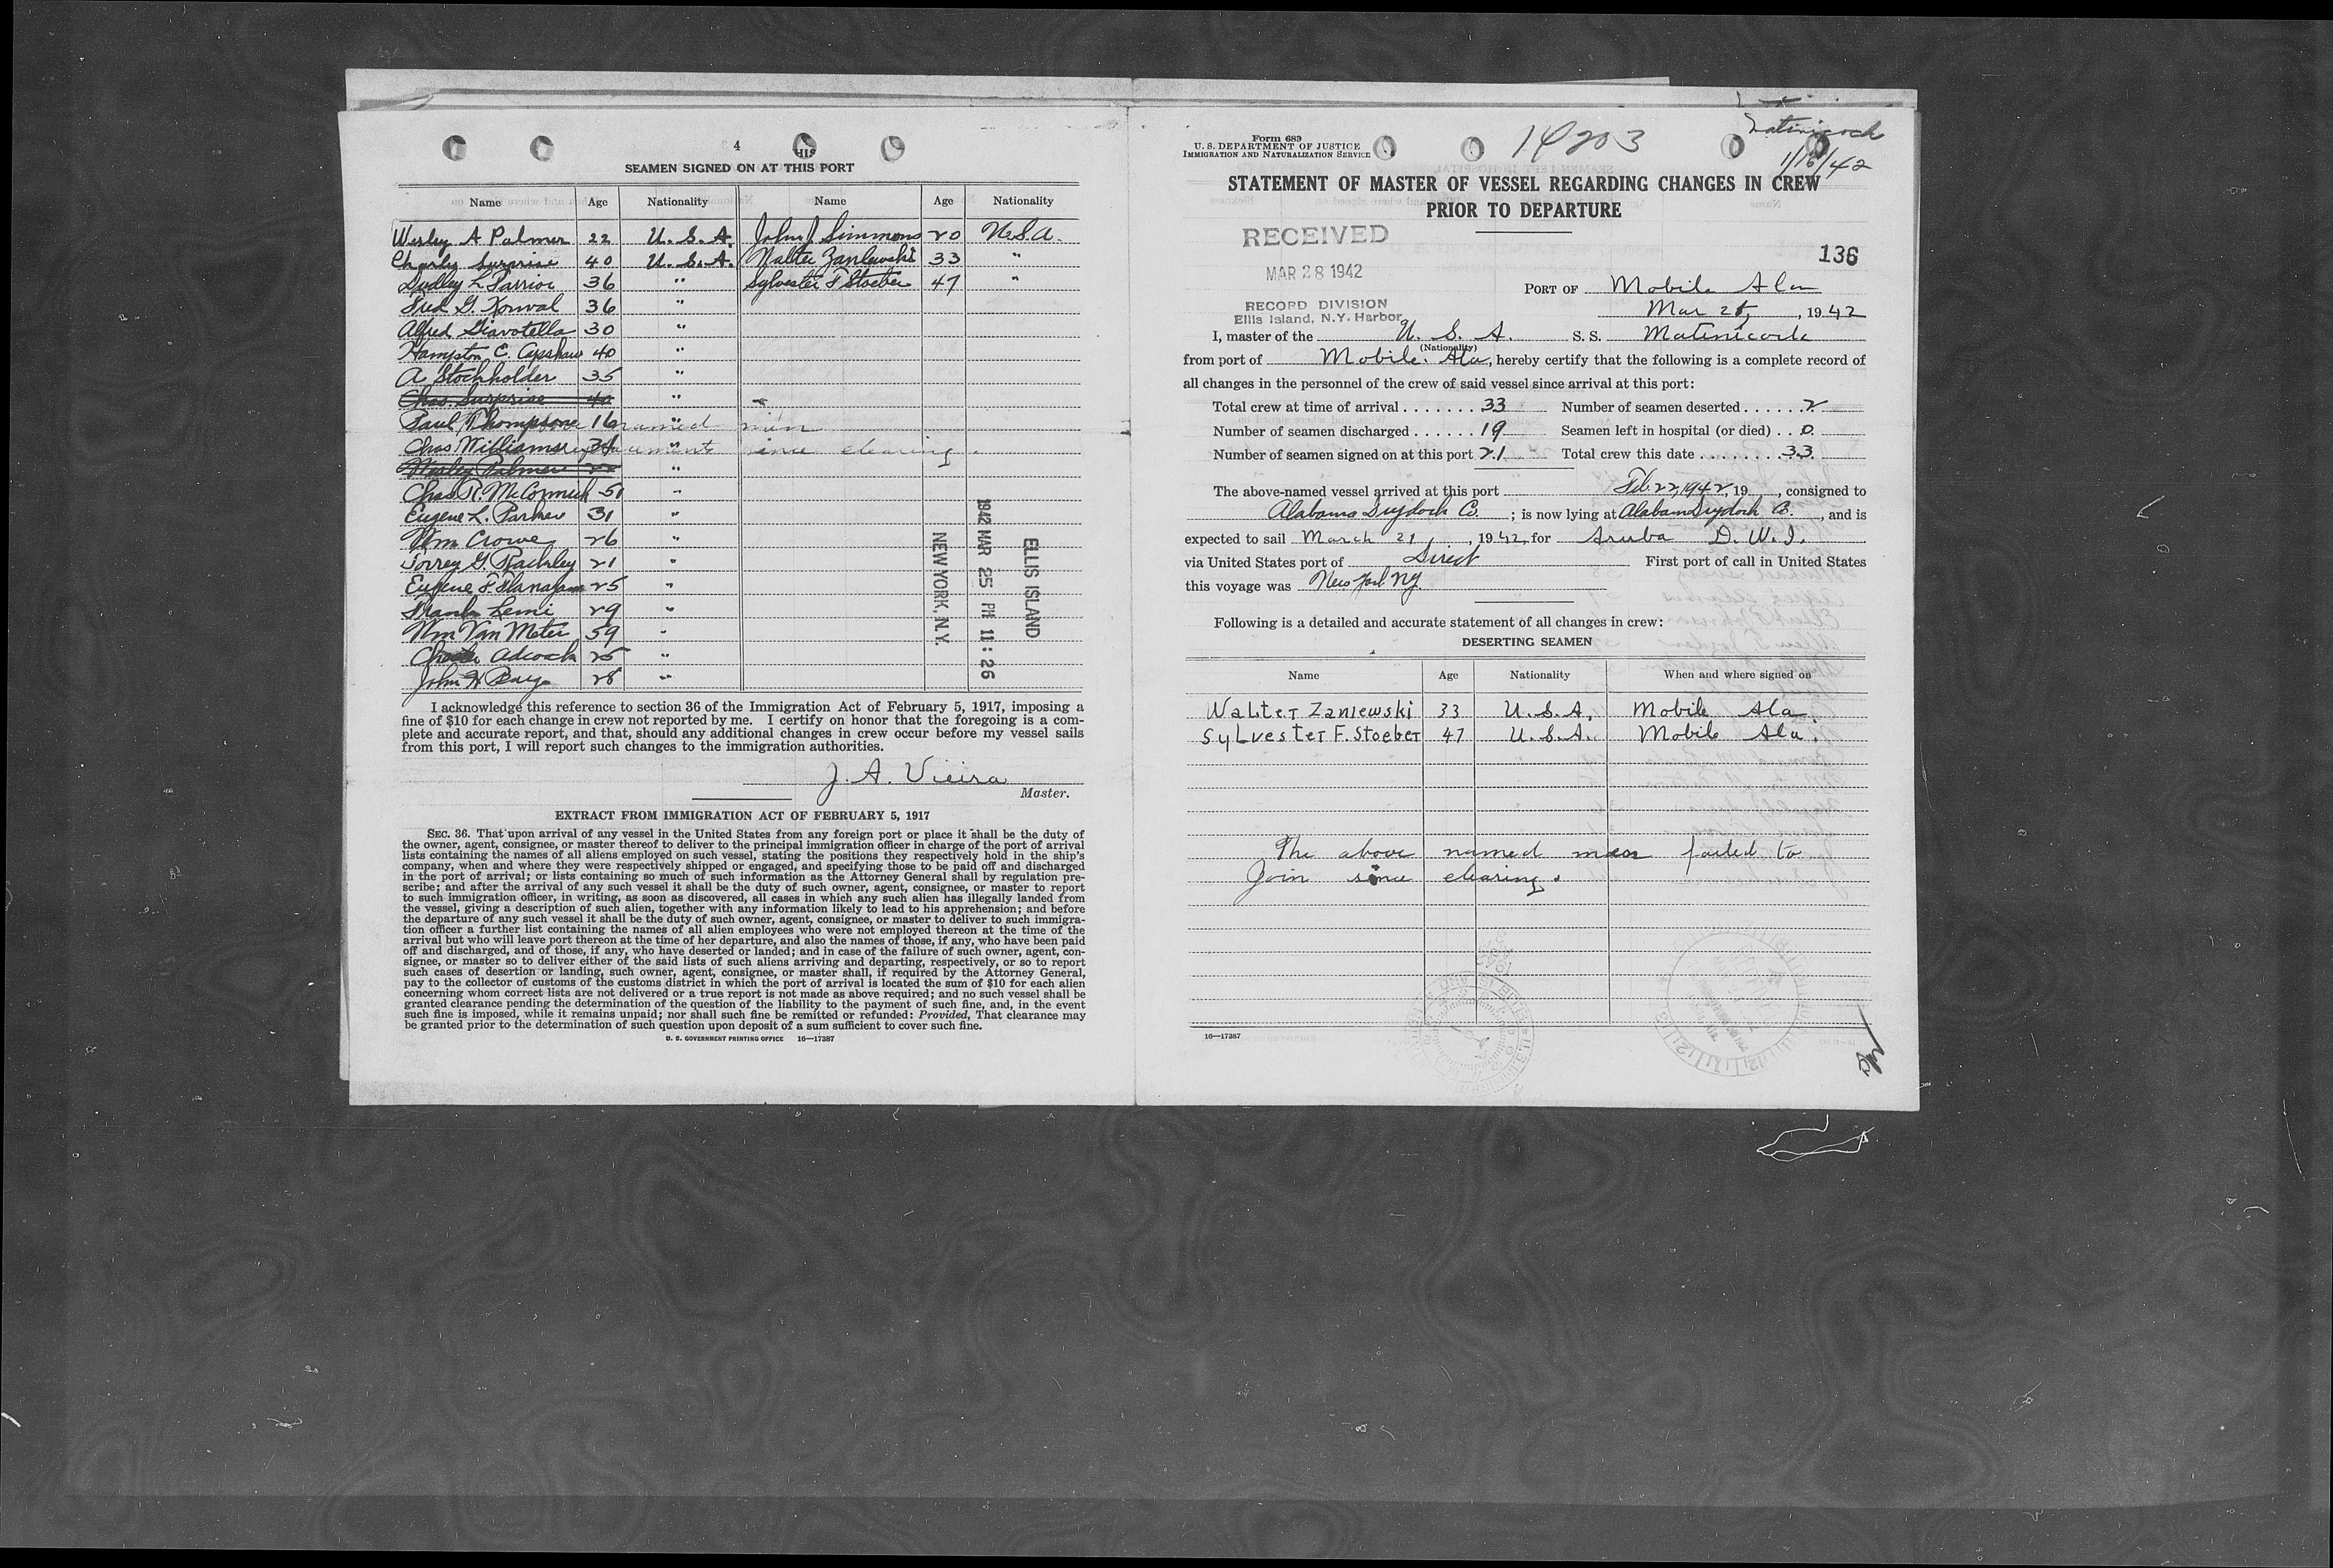 4
HIS
SEAMEN SIGNED ON AT THIS PORT
Name Age Nationality Name Age Nationality
Wesley A Palmer 22 U.S.A. John J Simmons 20 U.S.A.
Charly Surprise 40 U.S.A. Walter Zaniewski 33 "
Dudley L 36 " Sylvester F Stoeber 47 "
Fred G. Konval 36 "
Alfred Giavotella 30 "
Hampton C. Capshaw 40 "
A Stockholder 35 "
Chas. Surprise 40 "
Paul Thompson 16 "
Chas Williams 34 "
Wesley Palmer 22 "
named men
since clearing.
Chas R. McCormick 51 "
Eugene L. Parker 31 "
Wm Crowe 26 "
Torrey G. Rackley 21 "
Eugene F Flanagan 25 "
Frank Lemi 29 "
Wm Van Meter 59 "
Adcock 25 "
John H 28 "
ELLIS ISLAND
1942 MAR 25 PM 11:26
NEW YORK, N.Y.
I acknowledge this reference to section 36 of the Immigration Act of February 5, 1917, imposing a
fine of $10 for each change in crew not reported by me. I certify on honor that the foregoing is a com-
plete and accurate report, and that, should any additional changes in crew occur before my vessel sails
from this port, I will report such changes to the immigration authorities.
J. A. Vieira
Master.
EXTRACT FROM IMMIGRATION ACT OF FEBRUARY 5, 1917
SEC. 36. That upon arrival of any vessel in the United States from any foreign port or place it shall be the duty of
the owner, agent, consignee, or master thereof to deliver to the principal immigration officer in charge of the port of arrival
lists containing the names of all aliens employed on such vessel, stating the positions they respectively hold in the ship's
company, when and where they were respectively shipped or engaged, and specifying those to be paid off and discharged
in the port of arrival; or lists containing so much of such information as the Attorney General shall by regulation pre-
scribe; and after the arrival of any such vessel it shall be the duty of such owner, agent, consignee, or master to report
to such immigration officer, in writing, as soon as discovered, all cases in which any such alien has illegally landed from
the vessel, giving a description of such alien, together with any information likely to lead to his apprehension; and before
the departure of any such vessel it shall be the duty of such owner, agent, consignee, or master to deliver to such immigra-
tion officer a further list containing the names of all alien employees who were not employed thereon at the time of the
arrival but who will leave port thereon at the time of her departure, and also the names of those, if any, who have been paid
off and discharged, and of those, if any, who have deserted or landed; and in case of the failure of such owner, agent, con-
signee, or master so to deliver either of the said lists of such aliens arriving and departing, respectively, or so to report
such cases of desertion or landing, such owner, agent, consignee, or master shall, if required by the Attorney General,
pay to the collector of customs of the customs district in which the port of arrival is located the sum of $10 for each alien
concerning whom correct lists are not delivered or a true report is not made as above required; and no such vessel shall be
granted clearance pending the determination of the question of the liability to the payment of such fine, and, in the event
such fine is imposed, while it remains unpaid; nor shall such fine be remitted or refunded: Provided, That clearance may
be granted prior to the determination of such question upon deposit of a sum sufficient to cover such fine.
U. S. GOVERNMENT PRINTING OFFICE 16—17387
Form 689
U. S. DEPARTMENT OF JUSTICE
IMMIGRATION AND NATURALIZATION SERVICE
14203
Matinicock
1/16/42
STATEMENT OF MASTER OF VESSEL REGARDING CHANGES IN CREW
PRIOR TO DEPARTURE
RECEIVED
MAR 28 1942
RECORD DIVISION
Ellis Island, N.Y. Harbor
136
PORT OF Mobile Ala
Mar 25, , 1942
I, master of the U. S. A. S. S. Matinicock
(Nationality)
from port of Mobile. Ala, hereby certify that the following is a complete record of
all changes in the personnel of the crew of said vessel since arrival at this port:
Total crew at time of arrival . . . . . . . 33 Number of seamen deserted . . . . . . 2
Number of seamen discharged . . . . . . 19 Seamen left in hospital (or died) . . 0
Number of seamen signed on at this port 21 Total crew this date . . . . . . . . 33
The above-named vessel arrived at this port Feb. 22, 1942, 19 , consigned to
Alabama Drydock Co. ; is now lying at Alabama Drydock Co. , and is
expected to sail March 21, , 1942, for Aruba D. W. I.
via United States port of Direct First port of call in United States
this voyage was New York NY.
Following is a detailed and accurate statement of all changes in crew:
DESERTING SEAMEN
Name Age Nationality When and where signed on
Walter Zaniewski 33 U.S.A. Mobile Ala.
Sylvester F. Stoeber 47 U.S.A. Mobile Ala.
The above named men failed to
Join since clearing.
16—17387